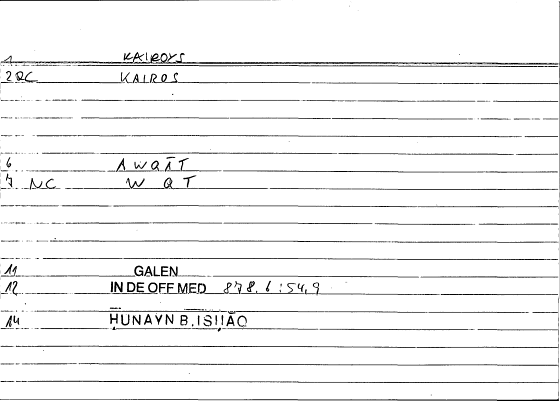 1 KAIROYS
2 RC KAIROS
6 AWQĀT
7 NC W Q T
11 GALEN
12 IN DE OFF MED 878.6:54,9
14 ḤUNAYN B. ISḤĀQ